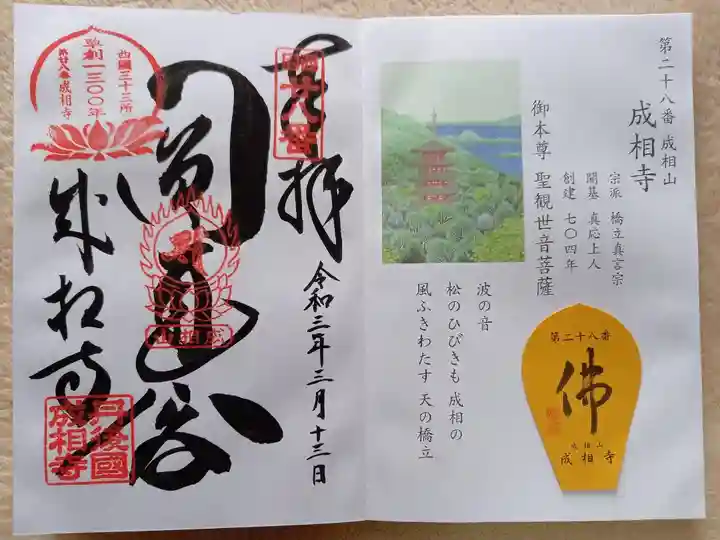 第二十八番 成相山
成相寺
宗派 橋立真言宗
開基 真応上人
創建 七〇四年
御本尊 聖観世音菩薩
波の音
松のひびきも 成相の
風ふきわたす 天の橋立
第二十八番
佛
成相山
成相寺
奉拝
令和三年三月十三日
西國三十三所
草創一三〇〇年
第廿八番成相寺
成相山
成相寺
丹後國
成相寺